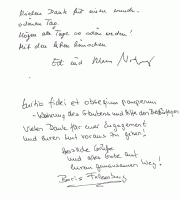 Vielen Dank für einen wunder-
schönen Tag.
Mögen alle Tage so schön werden!
Mit den lieben Wünschen
und
tuitio fidei et obsequium pauperum
- Wahrung des Glaubens und Hilfe den Bedürftigen
Vielen Dank für euer Engagement
und euren Mut voraus zu gehen!
Herzliche Grüße
und alles Gute auf
Eurem gemeinsamen Weg!
Boris